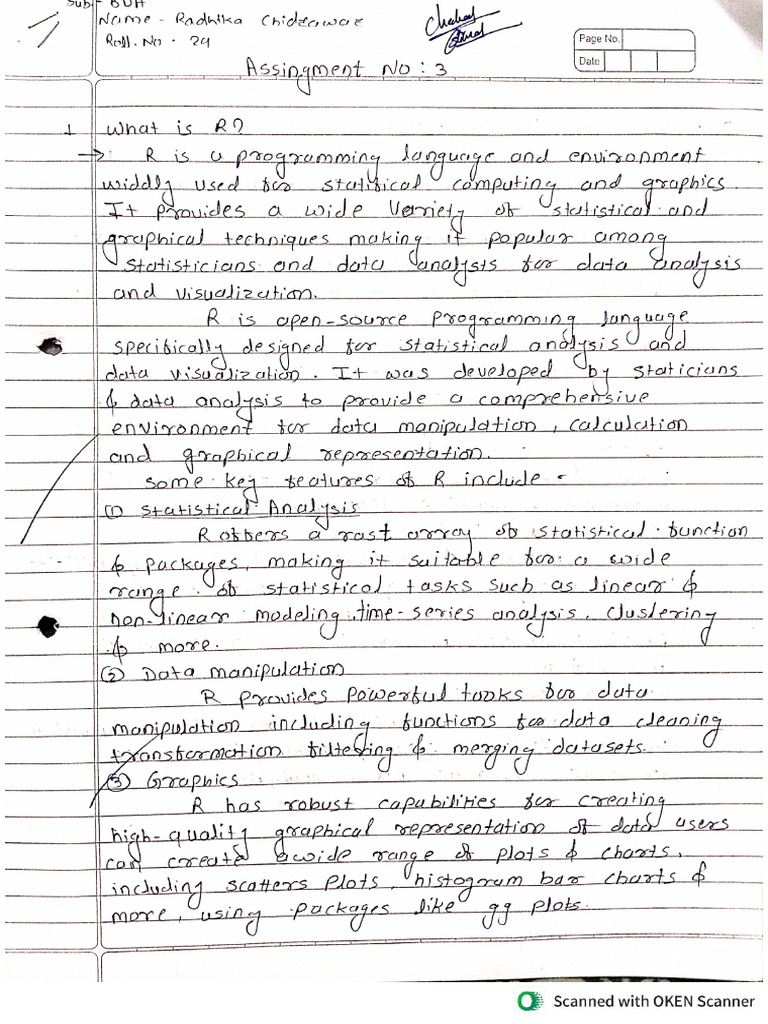 Sub:- BDA
Name - Radhika Chidrawar
Roll. No. 24
Page No.
Date
Assingment No : 3
1 What is R?
→ R is a programming language and environment
widdly used for statifical computing and graphics.
It provides a wide variety of statistical and
graphical techniques making it popular among
statisticians and data analysts for data analysis
and visualization.
R is open-source programming language
specifically designed for statistical analysis and
data visualization. It was developed by staticians
& data analysis to provide a comprehensive
environment for data manipulation, calculation
and graphical representation.
Some key features of R include -
(1) Statistical Analysis
R offers a vast array of statistical function
& packages, making it suitable for a wide
range of statistical tasks such as linear &
non-linear modeling, time-series analysis, clustering
& more.
(2) Data manipulation
R provides powerful tools for data
manipulation including functions for data cleaning
transformation filtering & merging datasets.
(3) Graphics
R has robust capabilities for creating
high-quality graphical representation of data users
can create a wide range of plots & charts,
including scatters plots, histogram bar charts &
more, using packages like gg plots.
Scanned with OKEN Scanner